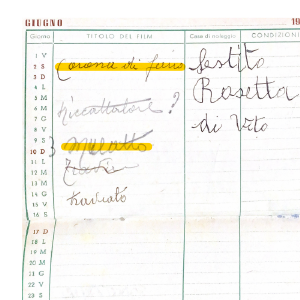 GIUGNO 19
Giorno TITOLO DEL FILM Casa di noleggio CONDIZIONI
1 V
2 S Corona di ferro Sestito
3 D
4 L Rosetta
5 M
6 M Ricattatore ?
7 G di Vito
8 V
9 S Mulatto
10 D
11 L
12 M
13 M
14 G
15 V
16 S
17 D
18 L
19 M
20 M
21 G
22 V
23 S